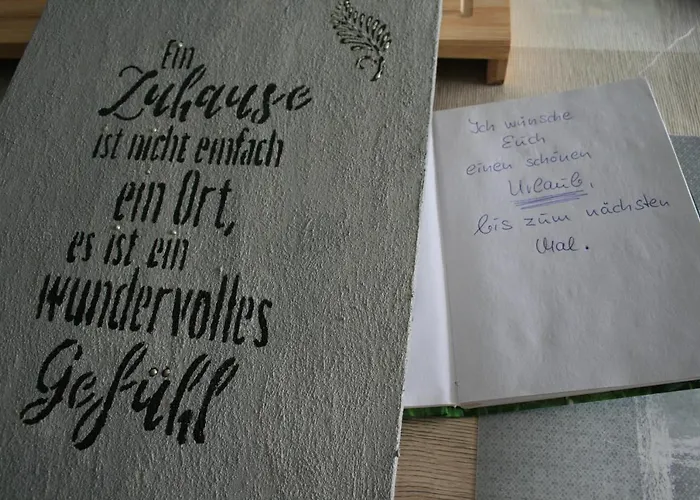 Ein
Zuhause
ist nicht einfach
ein Ort,
es ist ein
wundervolles
Gefühl
Ich wünsche
Euch
einen schönen
Urlaub,
bis zum nächsten
Mal.